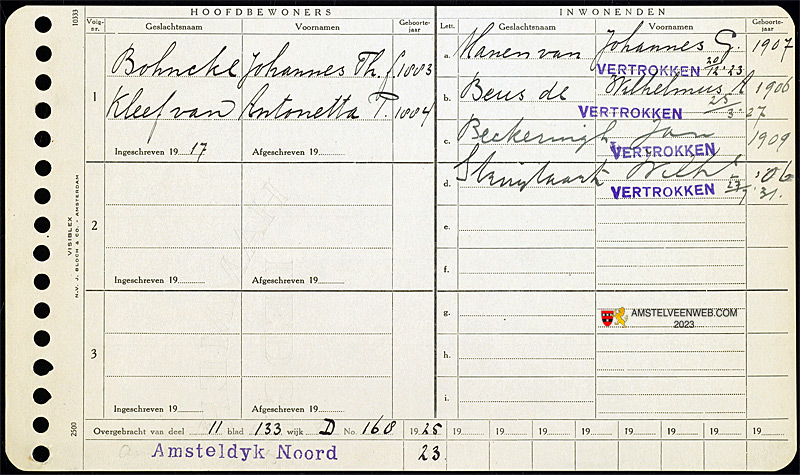 HOOFDBEWONERS
INWONENDEN
Volg-nr. Geslachtsnaam Voornamen Geboorte-jaar
Lett. Geslachtsnaam Voornamen Geboorte-jaar
1
Bohncke Johannes Th. J. 1883
Kleef van Antonetta P. 1884
Ingeschreven 19 17 Afgeschreven 19
2
Ingeschreven 19 Afgeschreven 19
3
Ingeschreven 19 Afgeschreven 19
a. Hanen van Johannes G. 1907
VERTROKKEN 20/12 '23
b. Beus de Wilhelmus A 1906
VERTROKKEN 25/3 - 27
c. Jan 1909
VERTROKKEN
d. Wilh '06
VERTROKKEN 31.
e.
f.
g.
AMSTELVEENWEB.COM
2023
h.
i.
Overgebracht van deel 11 blad 133 wijk D No. 168 19 25 19 19 19 19 19 19 19 19
Amsteldyk Noord 23. 19 19 19 19 19 19 19 19
10333
VISIBLEX
N.V. J. BLOCH & CO. - AMSTERDAM
2500